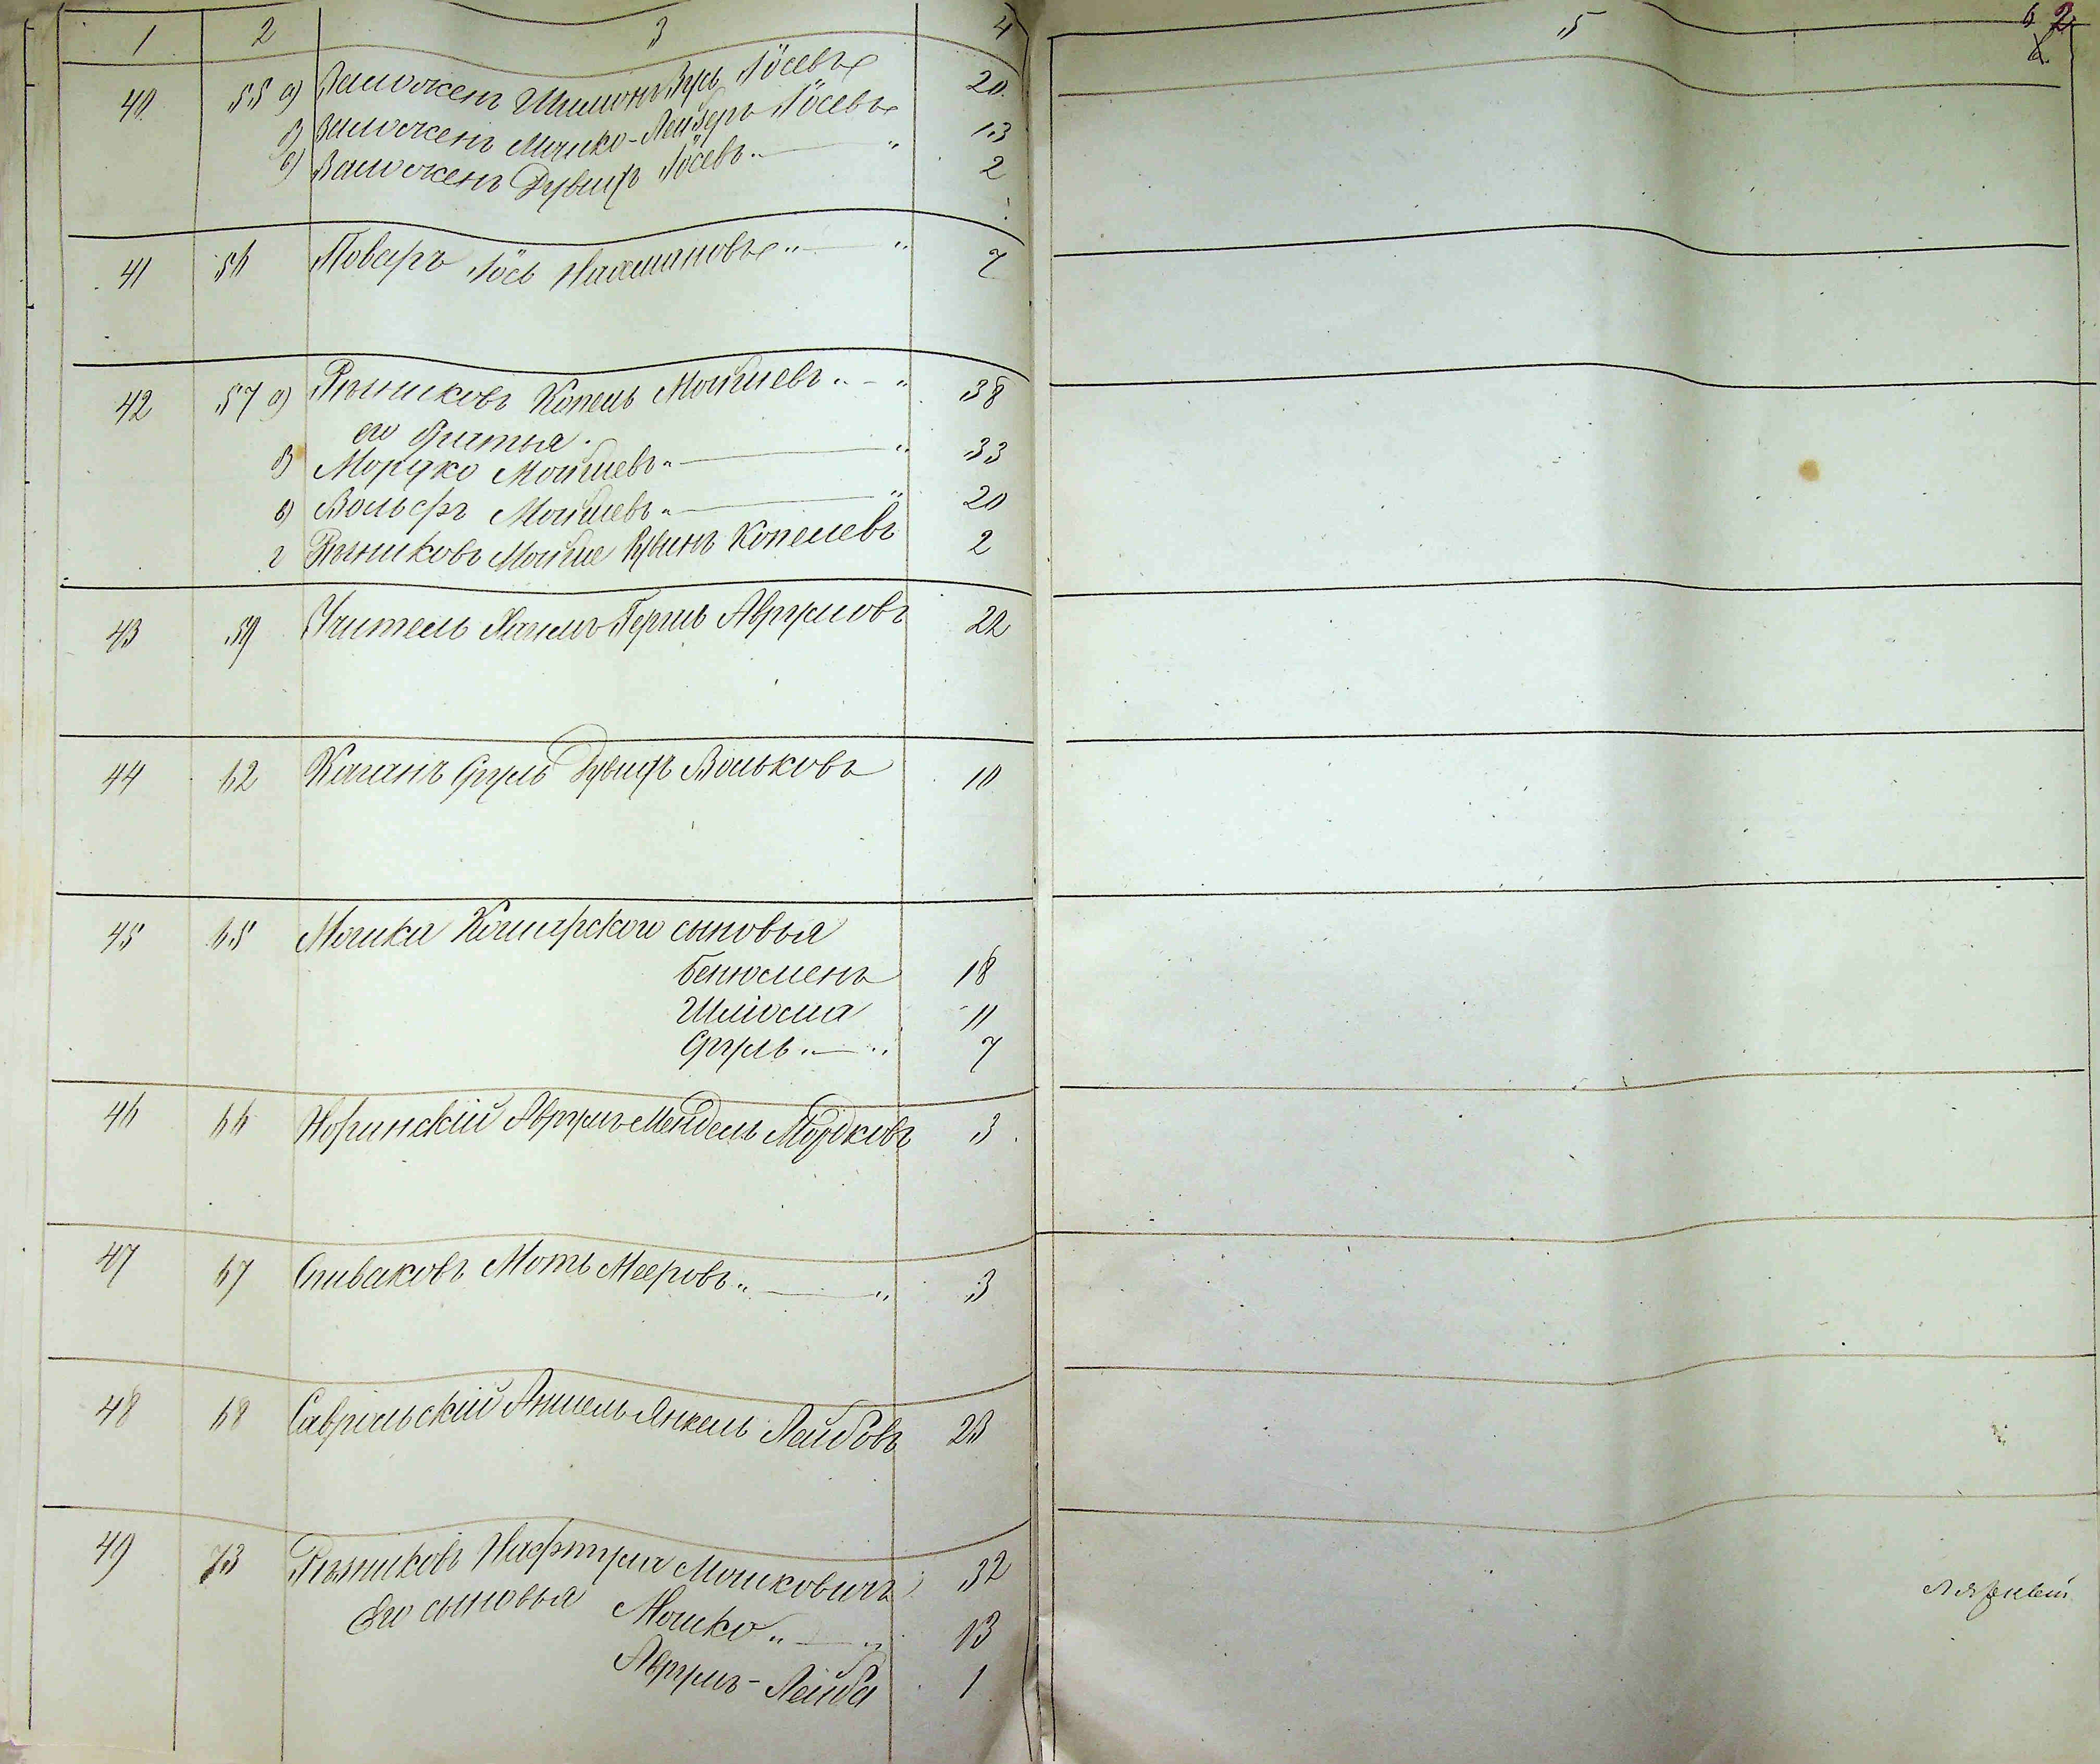 1 2 3 4 5 6 2
40 55 а) Замочкенъ Шимонъ Зусь Іосевъ 20
б) Замочкенъ Мошко-Лейзеръ Іосевъ 13
в) Замочкенъ Дувидъ Іосевъ 2
41 56 Поваръ Іось Нахмановъ 7
42 57 а) Рѣзниковъ Копель Мойшевъ 38
его братья
б) Мордко Мойшевъ 33
в) Вольфъ Мойшевъ 20
г Рѣзниковъ Мойше Копелевъ 2
43 59 Учитель Хаимъ Гершъ Аврумовъ 22
44 62 Каганъ Сруль Дувидъ Вольковъ 10
45 65 Мошки Кошарского сыновья
Бенюменъ 18
Шліома 11
Сруль 7
46 66 Норинскій Аврумъ Мендель Мордковъ 3
47 67 Спиваковъ Моть Мееровъ 3
48 68 Савранскій Аншель Янкель Лейбовъ 23
49 73 Рѣзниковъ Нафтула Мошковичъ 32
Его сыновья Мошко 13
Аврумъ-Лейба 1